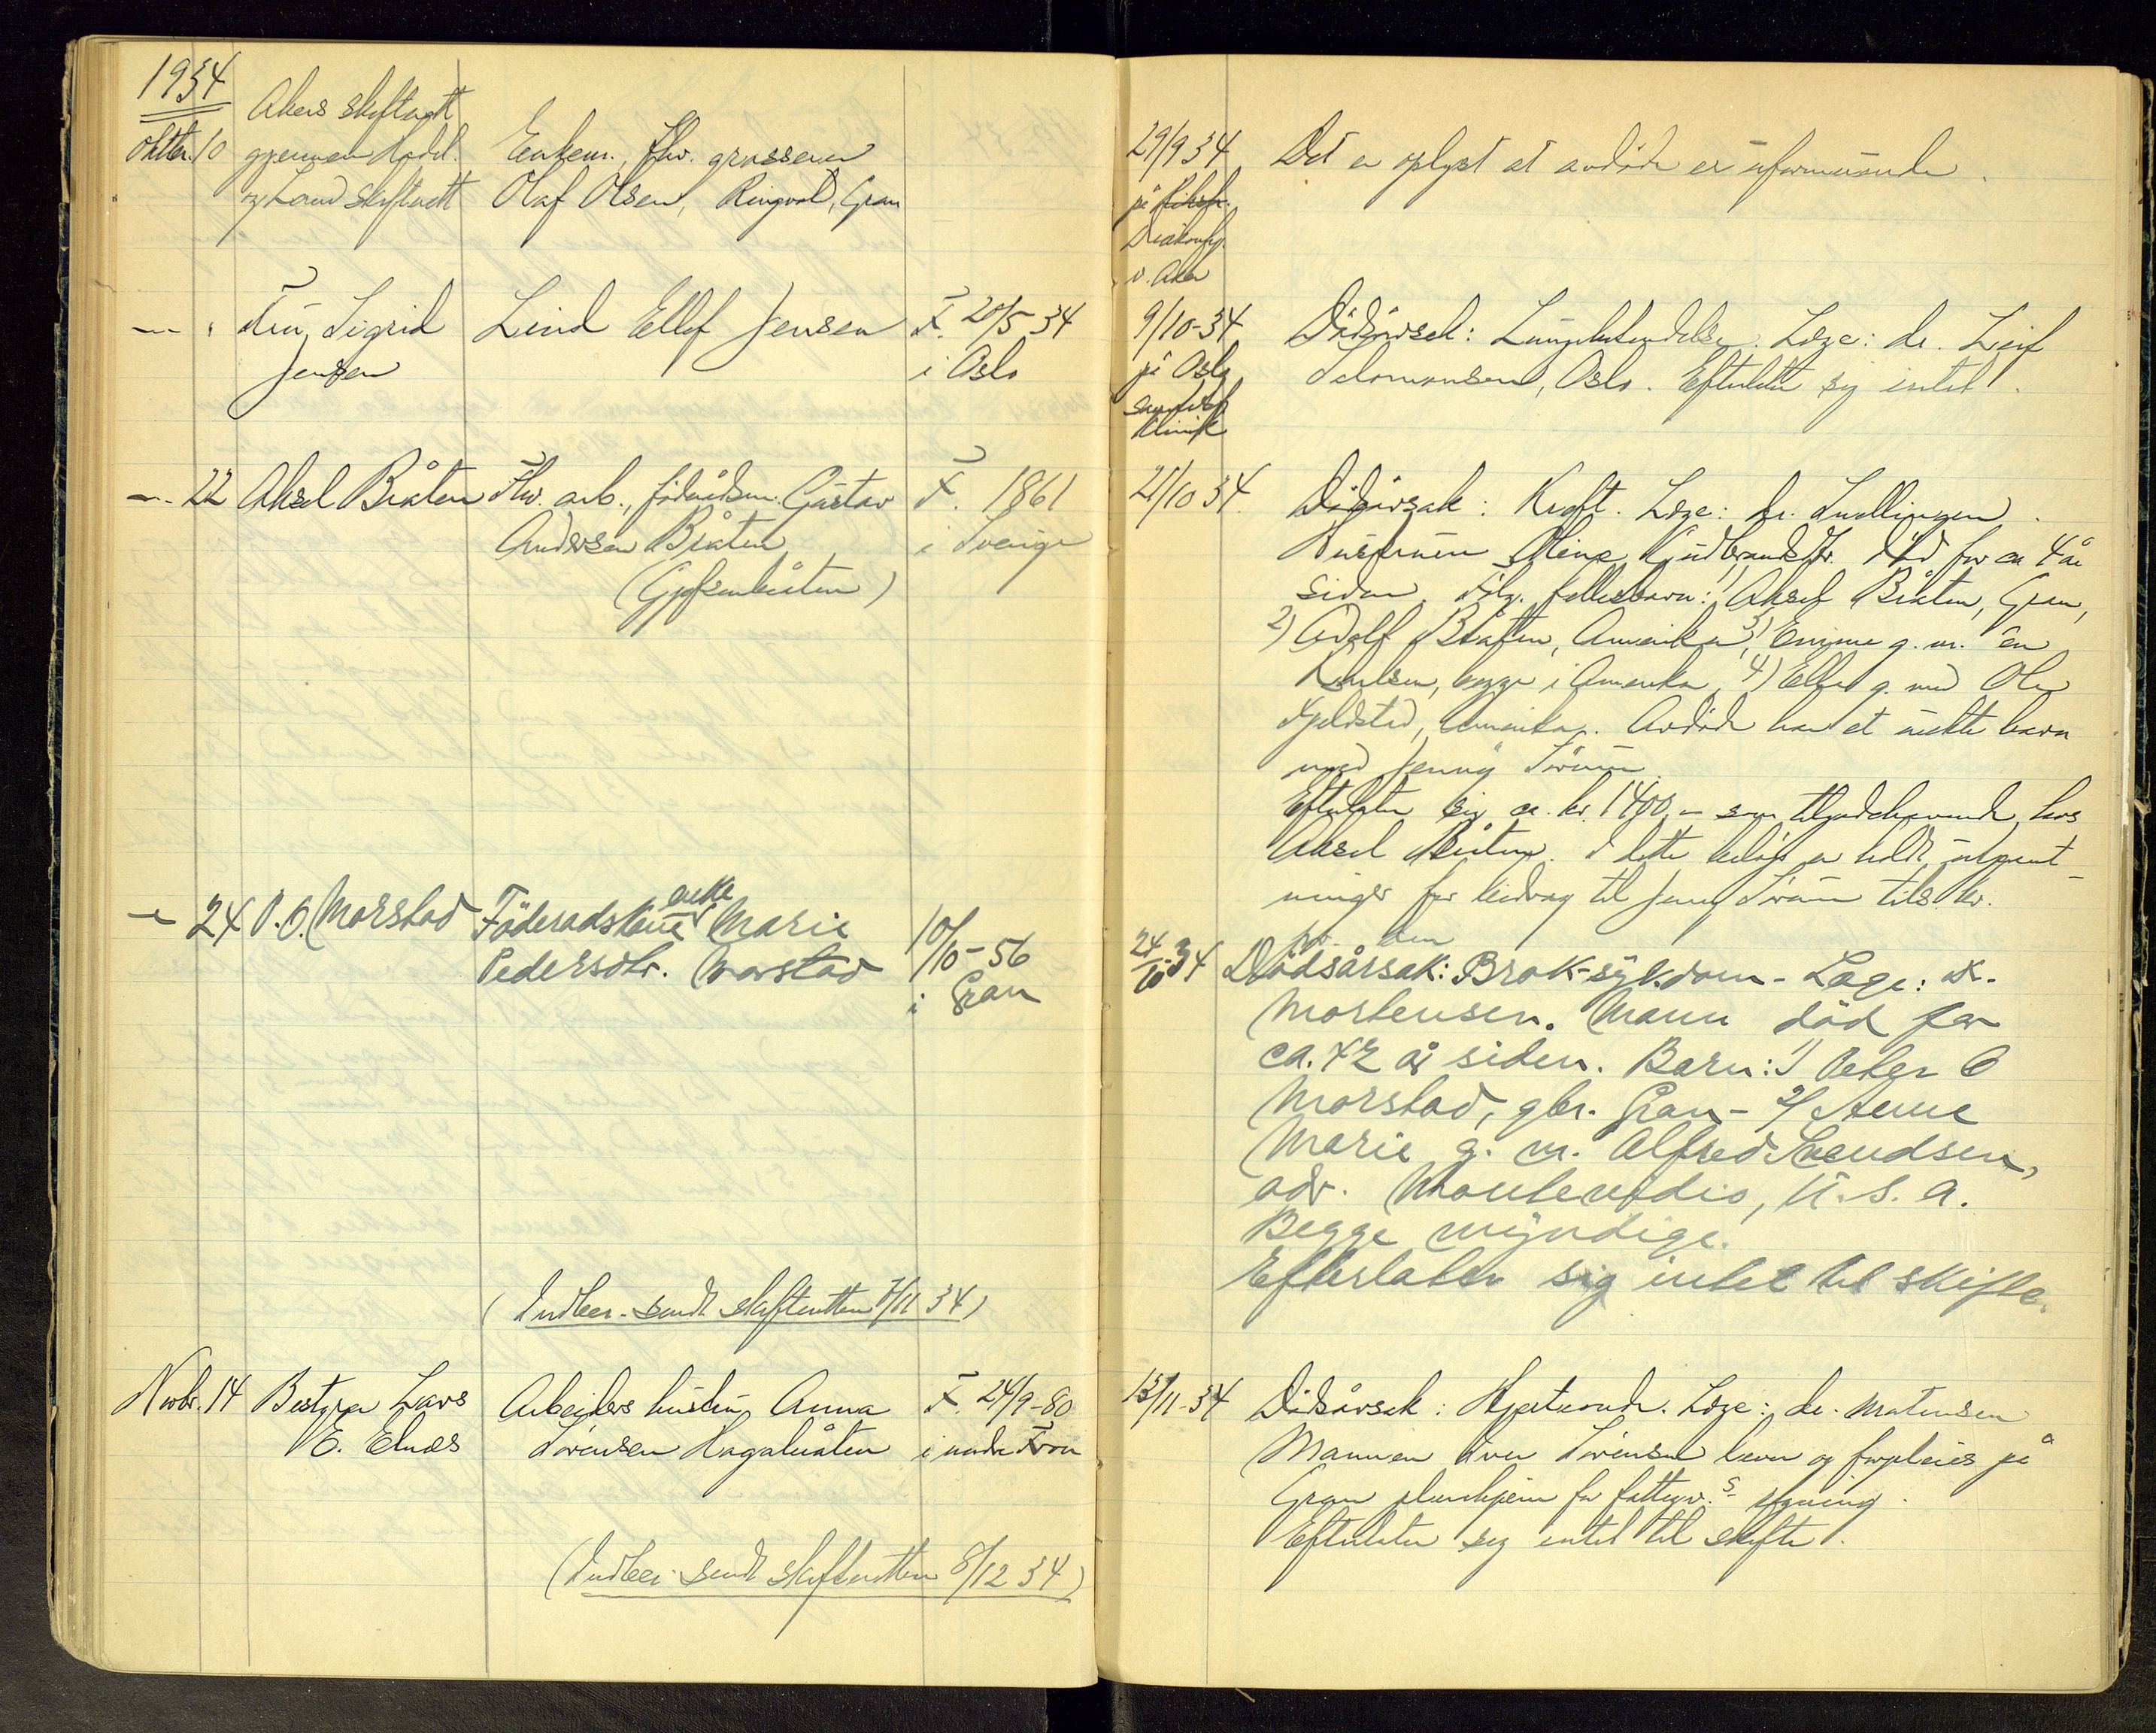 1934
Akers skifterett
Oktbr. 10 gjennem Hadel.
og Land skifterett
Enkem., fhv. grosserer
Olaf Olsen, Ringvol, Gran
29/9 34
på
Diakonhj.
v. Aker
Det er oplyst at avdøde er uformuende.
— " Fru Sigrid
Jensen
Lind Ellef Jensen
F. 20/5 34
i Oslo
9/10-34
på Oslo
Klinik
Dødsårsak: Lungebetendelse. Læge: dr. Leif
Salomonsen, Oslo. Efterlatt sig intet.
— 22 Aksel Bråten
Fhv. arb., føderådsm. Gustav
Andersen Bråten
F. 1861
i Sverige
21/10 34.
Dødsårsak: Kreft. Læge: dr.
Hustruen Oline Gudbrandsdtr. død for ca 4 år
siden. Følg. fellesbarn: 1) Aksel Bråten, Gran,
2) Adolf Bråten, Amerika, 3) Emma g. m. en
Karlsen, begge i Amerika, 4) Ella g. med Ole
Fjeldstad, Amerika. Avdøde har et uekte barn
med Jenny
Efterlater sig ca. kr. 1400,- som tilgodehavende hos
Aksel Bråten. I dette beløp er holdt utenut-
ninger for bidrag til Jenny tils. kr.
— 24 P. O. Morstad
Föderadskone enke Marie
Pedersdtr. Morstad
10/10-56
i Gran
24/10-34
Dødsårsak: Brok-sykdom - Læge: dr.
Mortensen. Mann død for
ca. 42 år siden. Barn: 1) Peter O
Morstad, gbr. Gran - 2/ Anne
Marie g. m. Alfred Svendsen,
adr. Montevidio, U.S.A.
Begge myndige.
Efterlater sig intet til skifte.
(Indber. sendt skifteretten 7/11 34)
Novbr. 14 Bestyrer Lars
E. Elnæs
Arbeiders hustru Anna
Sørensen Hagabråten
F. 24/9-80
i nordre Fron
13/11-34
Dødsårsak: Hjerteonde. Læge: dr. Mortensen
Mannen Iver Sørensen lever og forpleies på
Gran pleiehjem for fattigv.s regning.
Efterlater sig intet til skifte.
(Indber. sendt skifteretten 8/12 34)